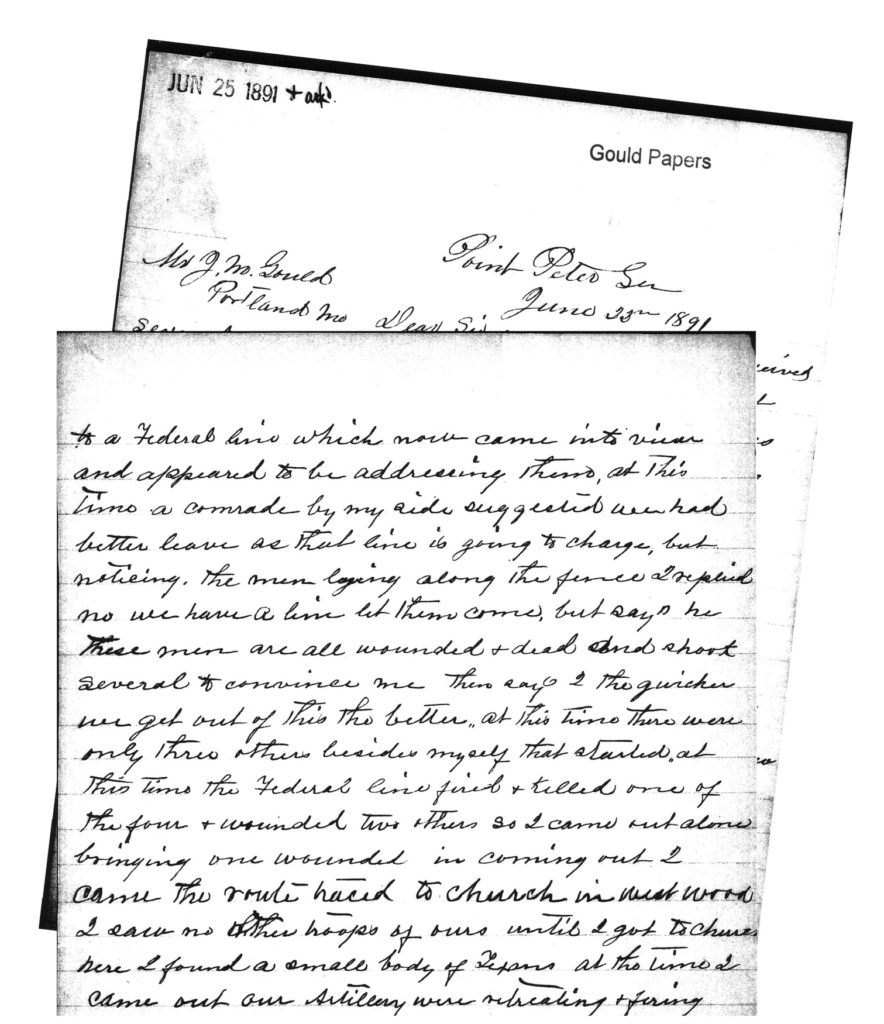 JUN 25 1891 + ark'.
Gould Papers
Mr J. M. Gould
Point Peter Ga
Portland Me
June 23rd 1891
Dear Sir
to a Federal line which now came into view
and appeared to be addressing them, at this
time a comrade by my side suggested we had
better leave as that line is going to charge, but
noticing. the men lying along the fence I replied
no we have a line let them come, but says he
these men are all wounded & dead and shook
several to convince me then says I the quicker
we get out of this the better,, at this time there were
only three others besides myself that started,, at
this time the Federal line fired & killed one of
the four & wounded two others so I came out alone
bringing one wounded in coming out I
came the route traced to church in west wood
I saw no other troops of ours until I got to
here I found a small body of Texans at the time I
came out our Artillery were retreating & firing